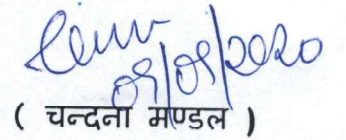 09/09/2020
( चन्दना मण्डल )